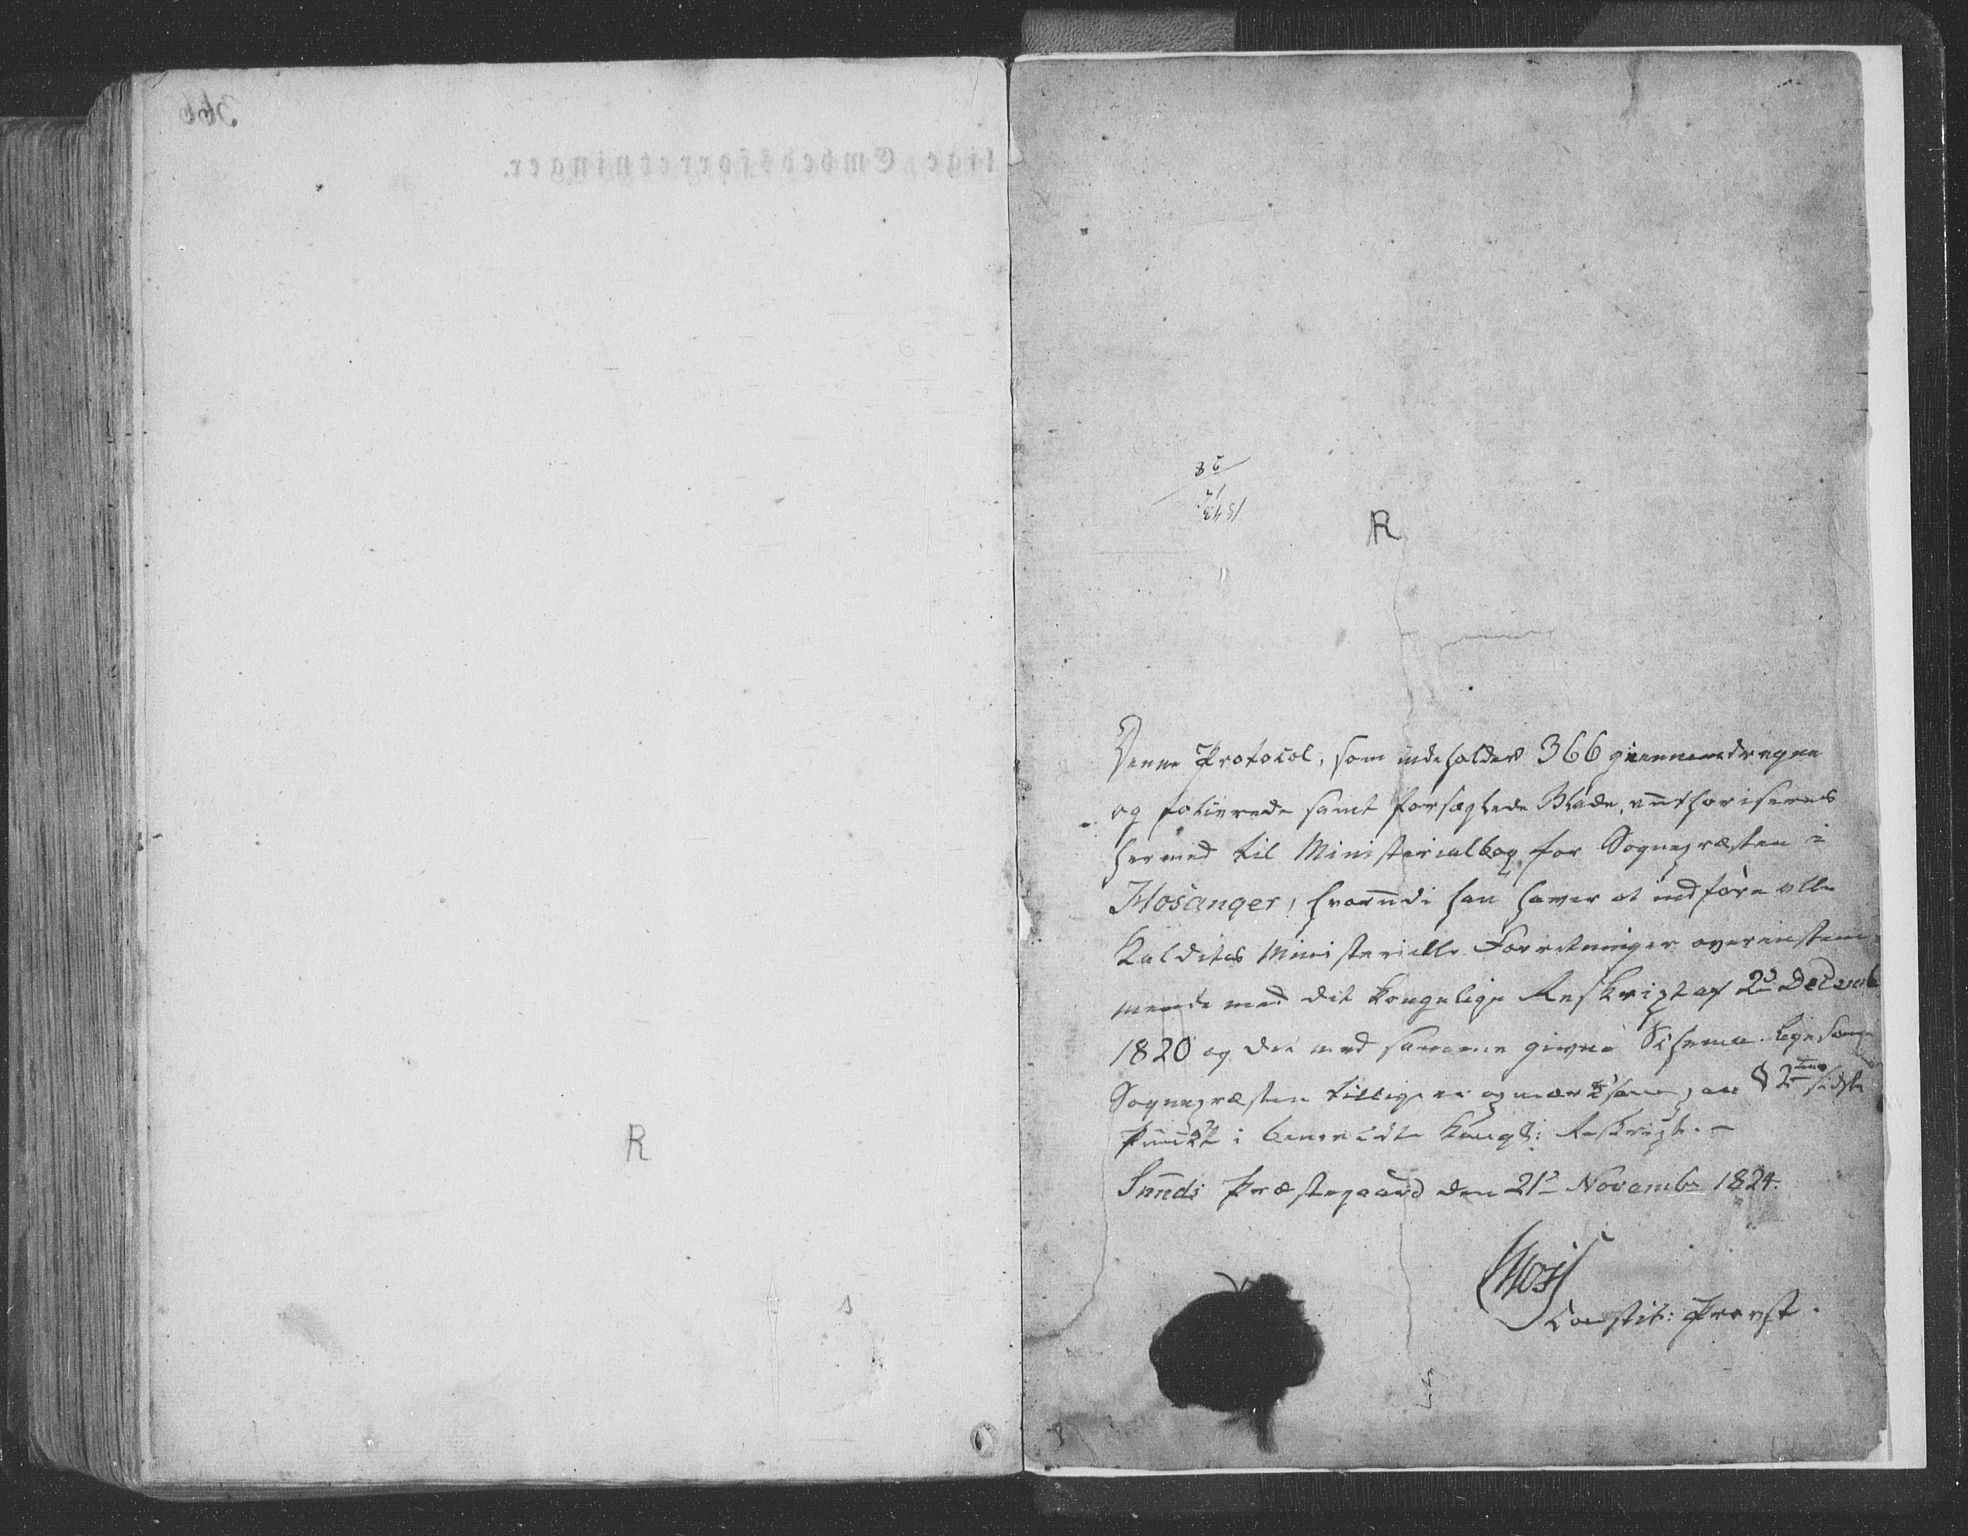 R
R
Denne Protocol, som indeholder 366 giennemdragne
og folierede samt forseglede Blade, authoriseres
hermed til Ministerialbog for Sognepræsten i
Hosanger, hvorudi han haver at indføre alle
Kaldets Ministerielle Forretninger overenstem-
mende med det kongelige Reskript af 2d Decemb
1820 og det med samme givne Schema, ligesom
Sognepræsten tillige er opmærksom paa § 2 sidste
Punct i benævnte Kongl: Reskript. –
Sunds Præstegaard den 21d Novembr 1824.
Constit: Provst.